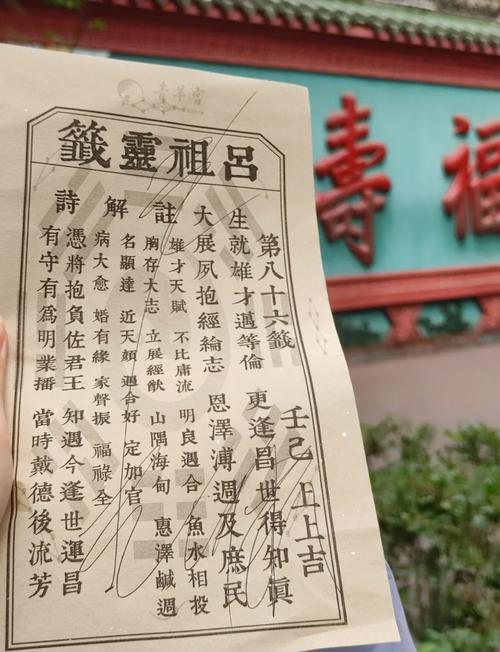 青羊宮
呂祖靈籤
第八十六籤 壬己 上上吉
生就雄才邁等倫 更逢昌世得知眞
大展夙抱經綸志 恩澤溥週及庶民
註
雄才天賦 不比庸流 明良遇合 魚水相投
胸存大志 立展經猷 山隅海甸 惠澤鹹週
解
名顯達 近天顏 遇合好 定加官
病大愈 婚有緣 家聲振 福祿全
詩
憑將抱負佐君王 知遇今逢世運昌
有守有爲明業播 當時戴德後流芳
福壽